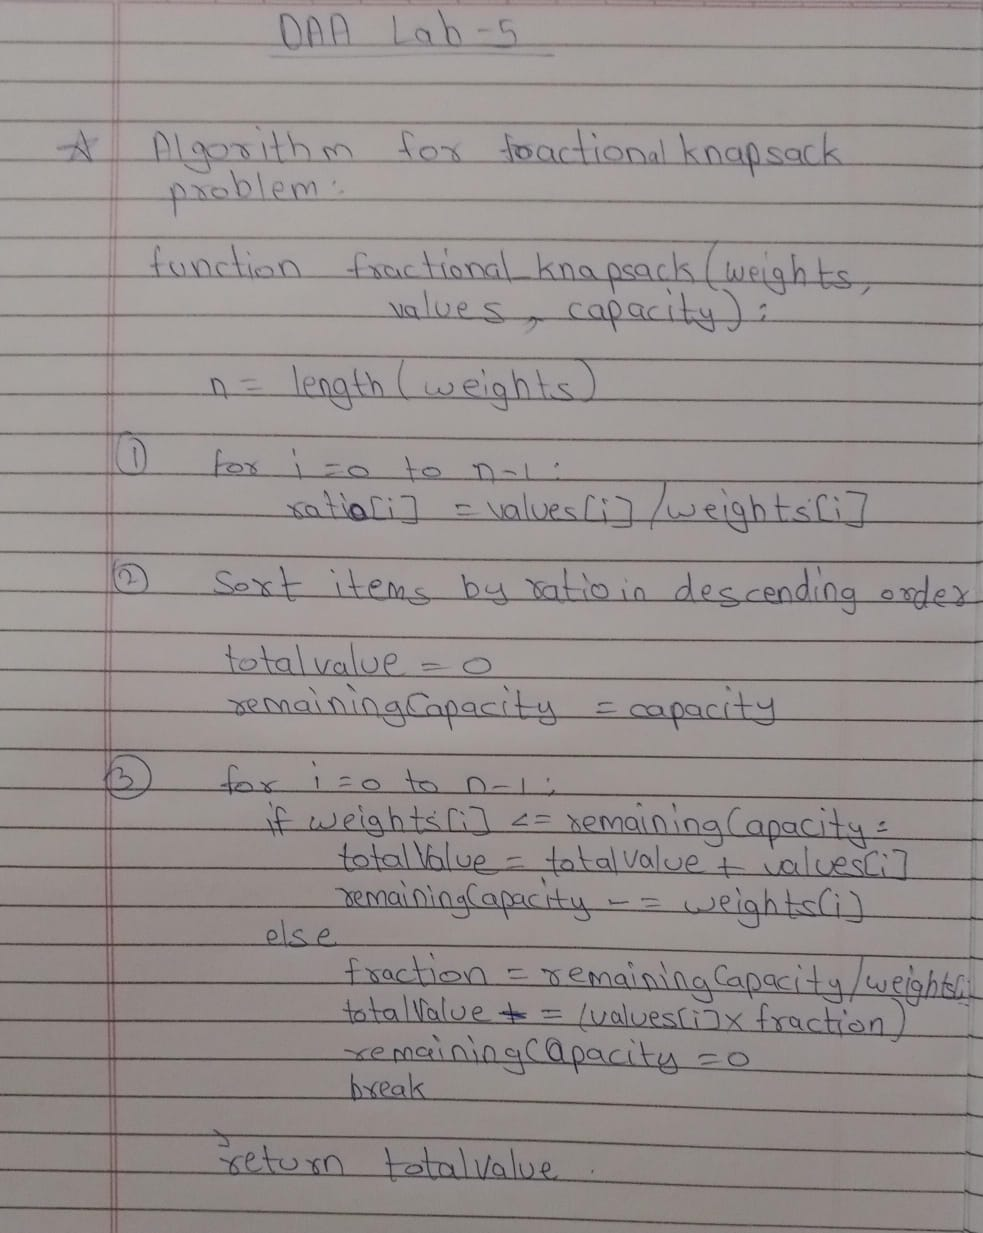 DAA Lab-5
☆ Algorithm for fractional knapsack
problem:
function fractional_knapsack(weights,
values, capacity):
n = length(weights)
① for i=0 to n-1:
ratio[i] = values[i]/weights[i]
② Sort items by ratio in descending order
totalvalue = 0
remainingCapacity = capacity
③ for i=0 to n-1:
if weights[i] <= remainingCapacity:
totalValue = totalvalue + values[i]
remainingCapacity -= weights[i]
else
fraction = remainingCapacity/weights[i]
totalValue += (values[i]x fraction)
remainingCapacity =0
break
return totalvalue.